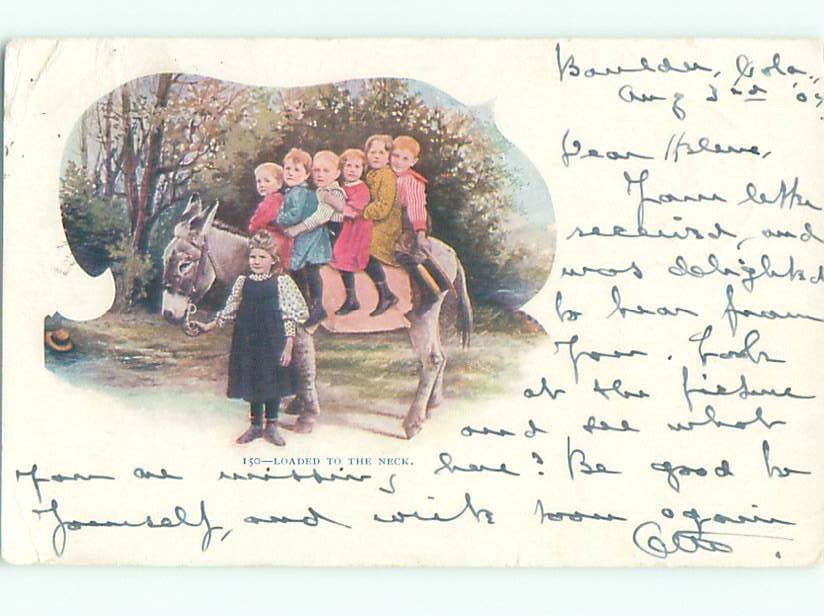 Boulder, Colo.,
Aug 3rd '05
Dear Helene,
Your letter
received, and
was delighted
to hear from
you. Look
at the picture
and see what
150—LOADED TO THE NECK.
you are missing here? Be good to
yourself, and write soon again
Otto.